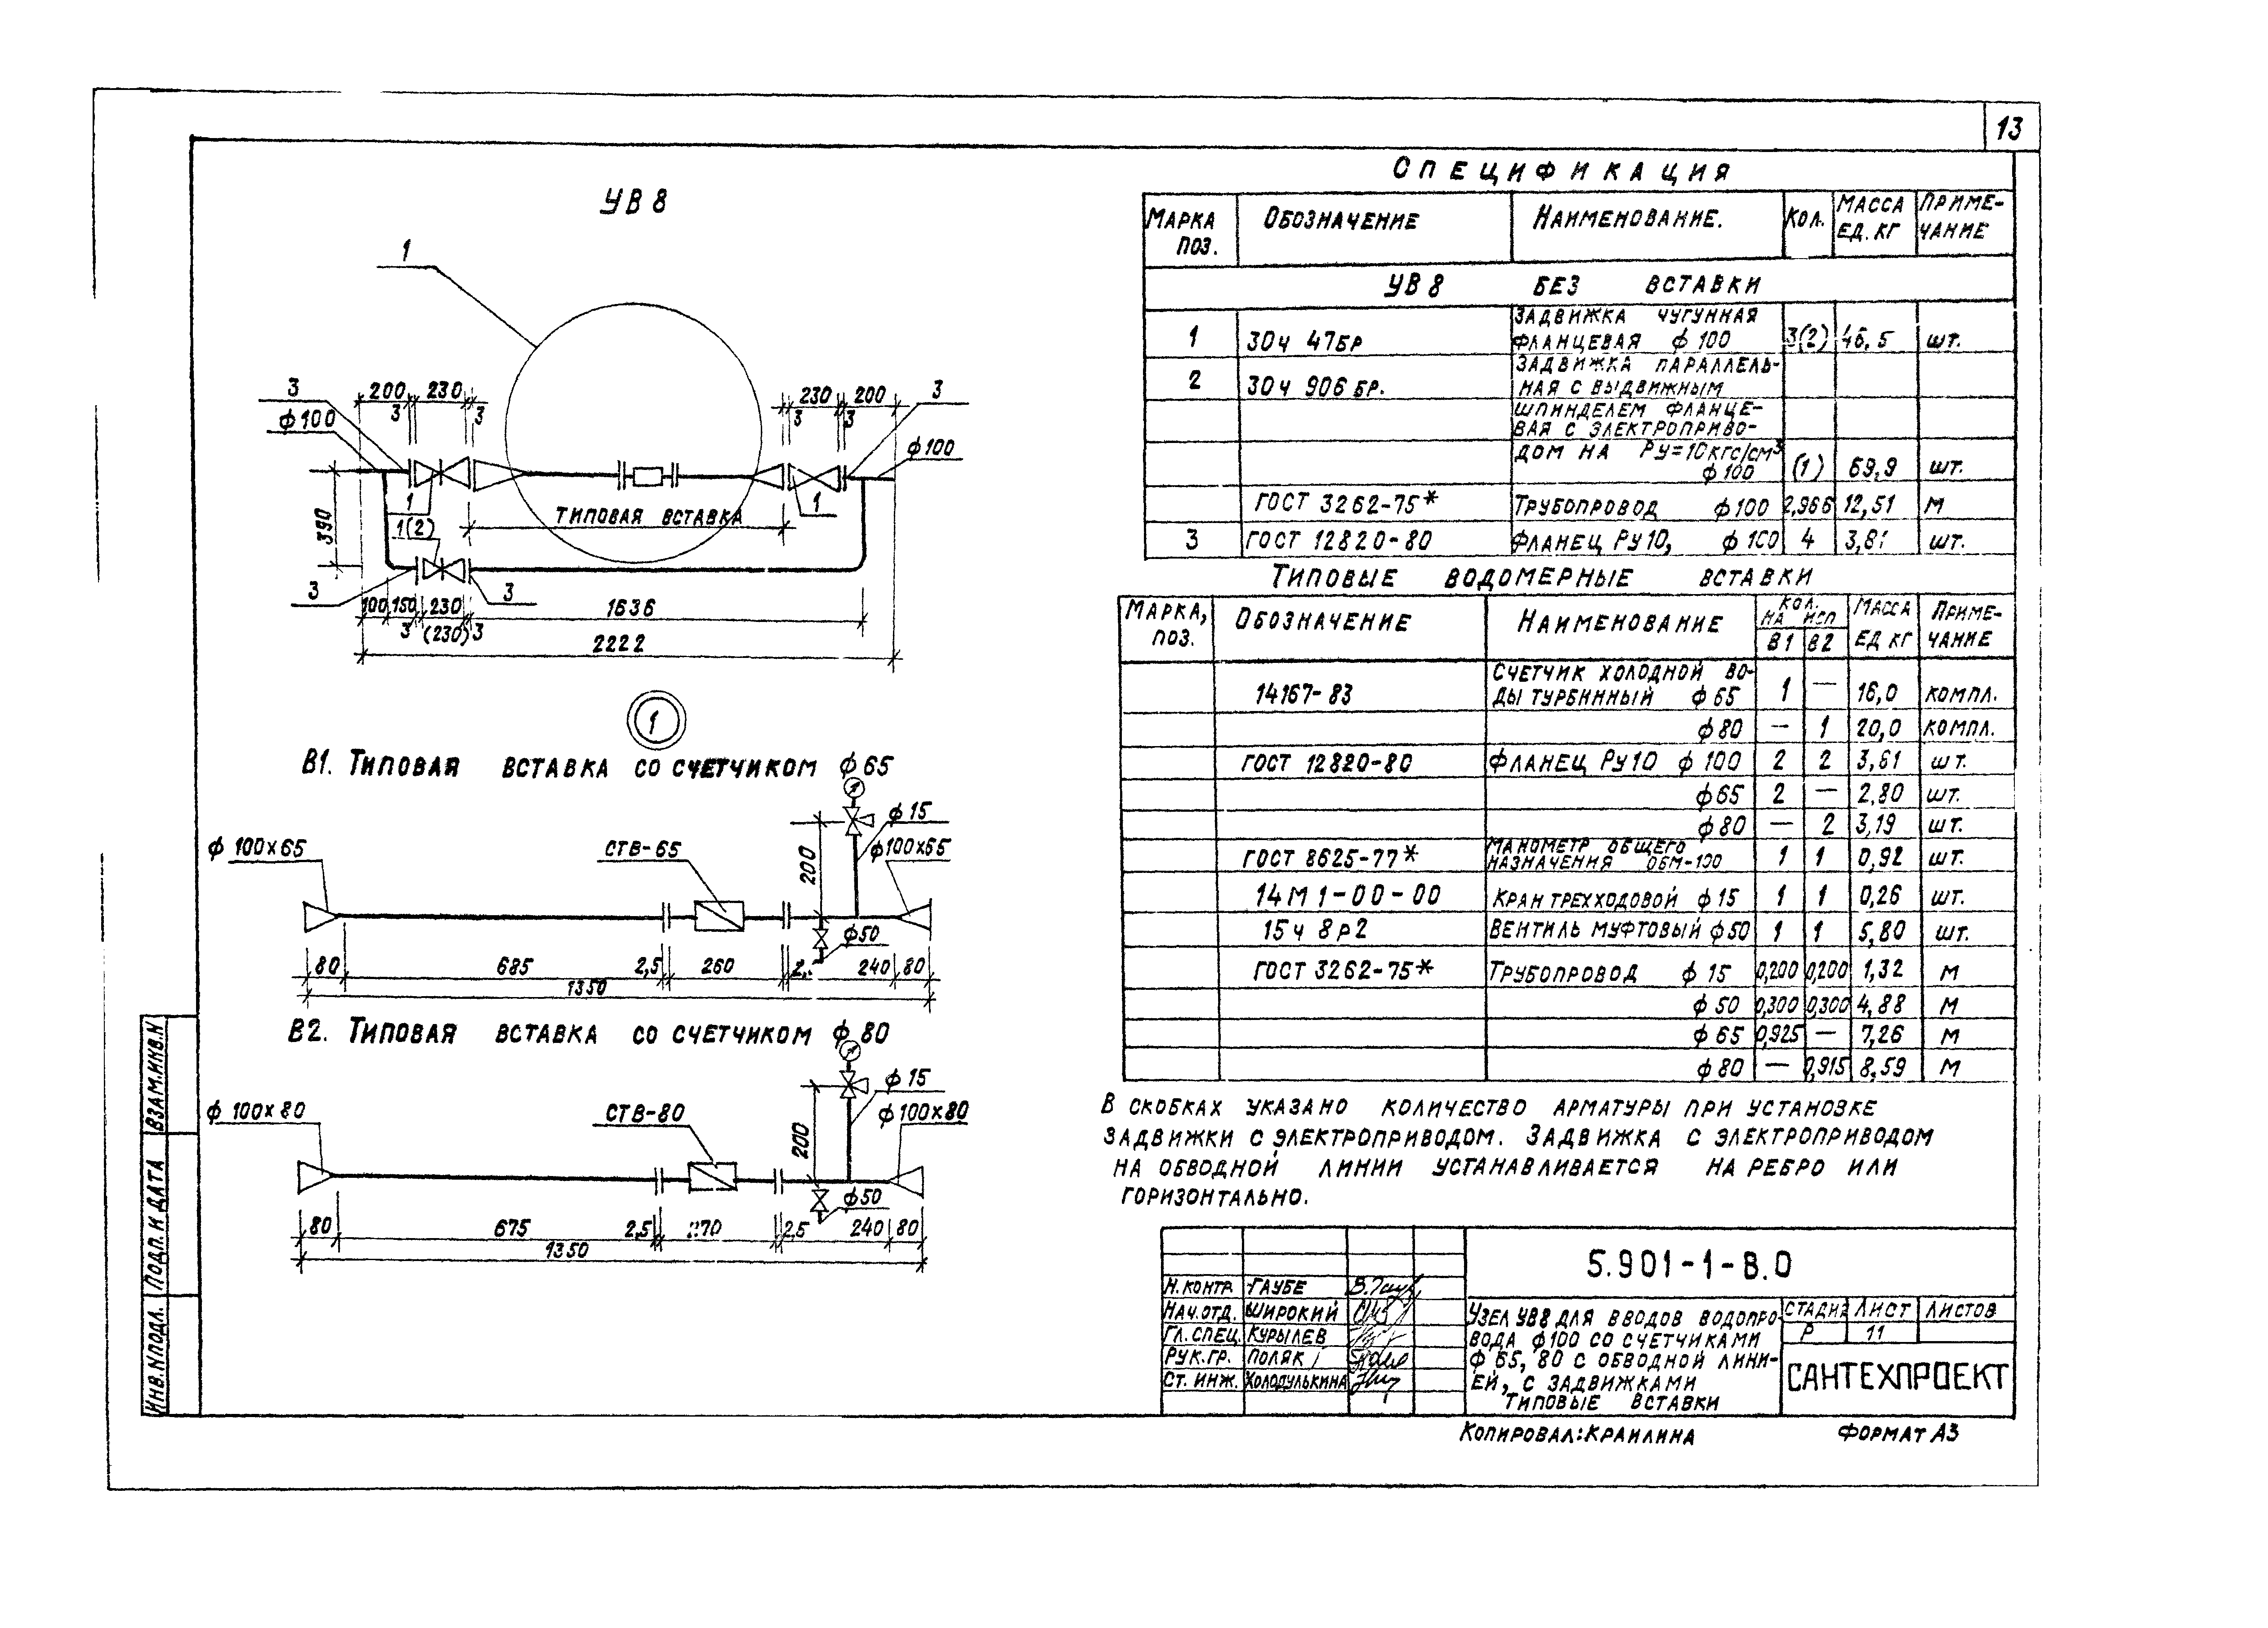 13
УВ 8
1
3
200 230
3 3
230 200
3 3
3
ф 100
ф 100
390
1
1(2)
ТИПОВАЯ ВСТАВКА
1
3
3
100 150 230 1636
3 (230) 3
2222
1
В1. ТИПОВАЯ ВСТАВКА СО СЧЕТЧИКОМ ф 65
ф 100х65
СТВ-65
200
ф 15
ф100х65
ф50
80 685 2,5 260 240 80
1350
В2. ТИПОВАЯ ВСТАВКА СО СЧЕТЧИКОМ ф 80
ф 100х80
СТВ-80
200
ф 15
ф100х80
ф50
80 675 2,5 270 2,5 240 80
1350
СПЕЦИФИКАЦИЯ
МАРКА ПОЗ. ОБОЗНАЧЕНИЕ НАИМЕНОВАНИЕ. КОЛ. МАССА ЕД. КГ ПРИМЕ-ЧАНИЕ
УВ 8 БЕЗ ВСТАВКИ
ЗАДВИЖКА ЧУГУННАЯ
1 30Ч 47БР ФЛАНЦЕВАЯ ф 100 3(2) 46,5 ШТ.
ЗАДВИЖКА ПАРАЛЛЕЛЬ-
2 30Ч 906 БР. НАЯ С ВЫДВИЖНЫМ
ШПИНДЕЛЕМ ФЛАНЦЕ-
ВАЯ С ЭЛЕКТРОПРИВО-
ДОМ НА РУ=10КГС/СМ²
ф 100 (1) 69,9 ШТ.
ГОСТ 3262-75* ТРУБОПРОВОД ф 100 2,966 12,51 М
3 ГОСТ 12820-80 ФЛАНЕЦ РУ 10, ф 100 4 3,81 ШТ.
ТИПОВЫЕ ВОДОМЕРНЫЕ ВСТАВКИ
МАРКА, ПОЗ. ОБОЗНАЧЕНИЕ НАИМЕНОВАНИЕ КОЛ. НА ИСП В1 В2 МАССА ЕД КГ ПРИМЕ-ЧАНИЕ
СЧЕТЧИК ХОЛОДНОЙ ВО-
14167-83 ДЫ ТУРБИННЫЙ ф 65 1 — 16,0 КОМПЛ.
ф 80 — 1 20,0 КОМПЛ.
ГОСТ 12820-80 ФЛАНЕЦ РУ 10 ф 100 2 2 3,61 ШТ.
ф 65 2 — 2,80 ШТ.
ф 80 — 2 3,19 ШТ.
МАНОМЕТР ОБЩЕГО
ГОСТ 8625-77* НАЗНАЧЕНИЯ ОБМ-100 1 1 0,92 ШТ.
14М1-00-00 КРАН ТРЕХХОДОВОЙ ф 15 1 1 0,26 ШТ.
15Ч 8Р2 ВЕНТИЛЬ МУФТОВЫЙ ф 50 1 1 5,80 ШТ.
ГОСТ 3262-75* ТРУБОПРОВОД ф 15 0,200 0,200 1,32 М
ф 50 0,300 0,300 4,88 М
ф 65 0,925 — 7,26 М
ф 80 — 0,915 8,59 М
В СКОБКАХ УКАЗАНО КОЛИЧЕСТВО АРМАТУРЫ ПРИ УСТАНОВКЕ
ЗАДВИЖКИ С ЭЛЕКТРОПРИВОДОМ. ЗАДВИЖКА С ЭЛЕКТРОПРИВОДОМ
НА ОБВОДНОЙ ЛИНИИ УСТАНАВЛИВАЕТСЯ НА РЕБРО ИЛИ
ГОРИЗОНТАЛЬНО.
5.901-1-В.0
Н. КОНТР. ГАУБЕ
НАЧ. ОТД. ШИРОКИЙ
ГЛ. СПЕЦ. КУРЫЛЕВ
РУК. ГР. ПОЛЯК
СТ. ИНЖ. ХОЛОДУЛЬКИНА
УЗЕЛ УВ8 ДЛЯ ВВОДОВ ВОДОПРО-
ВОДА ф100 СО СЧЕТЧИКАМИ
ф 65, 80 С ОБВОДНОЙ ЛИНИ-
ЕЙ, С ЗАДВИЖКАМИ
ТИПОВЫЕ ВСТАВКИ
СТАДИЯ ЛИСТ ЛИСТОВ
Р 11
САНТЕХПРОЕКТ
КОПИРОВАЛ: КРАИЛИНА ФОРМАТ А3
ВЗАМ.ИНВ.N
ПОДП. И ДАТА
ИНВ.NПОДЛ.